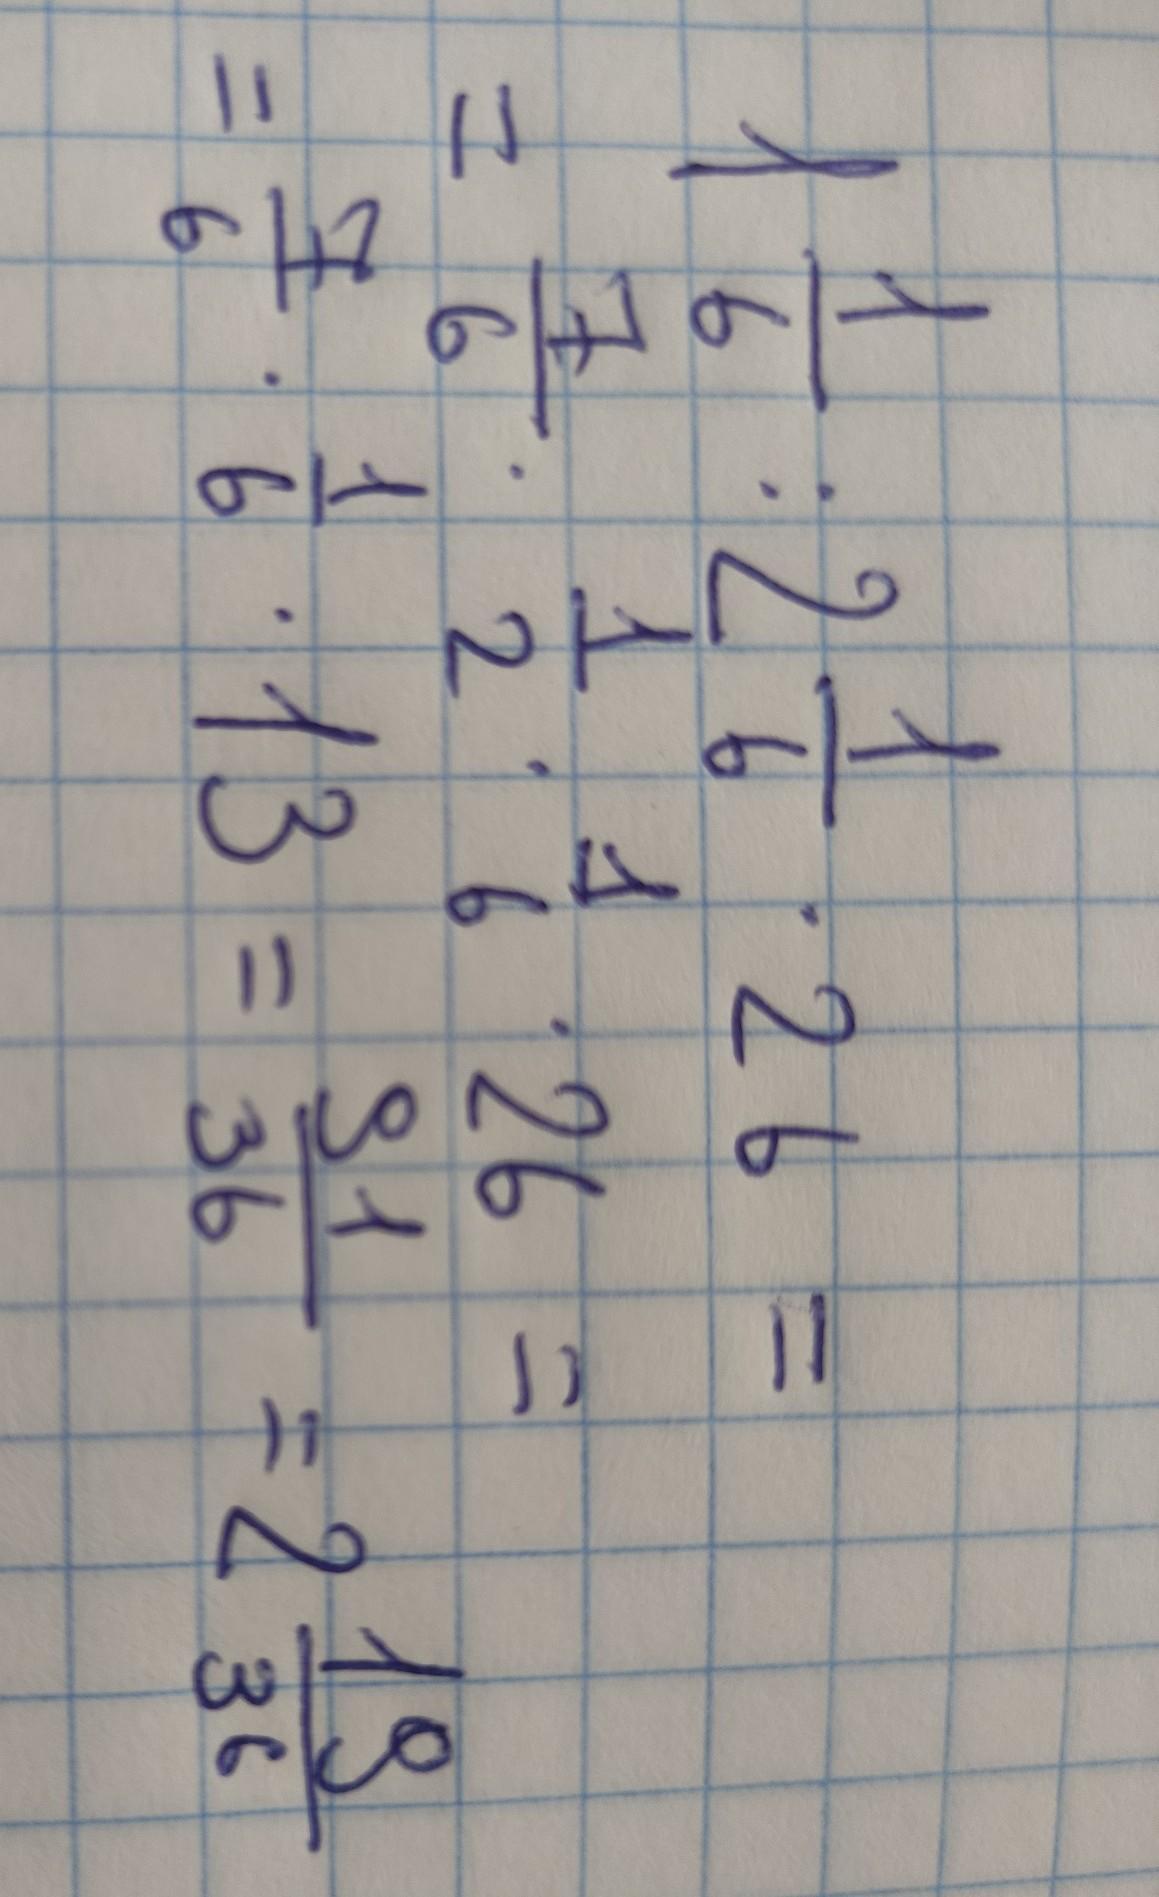 1 1/6 : 2 1/6 · 26 =
= 7/6 · 1/2 · 1/6 · 26 =
= 7/6 · 1/6 · 13 = 91/36 = 2 19/36